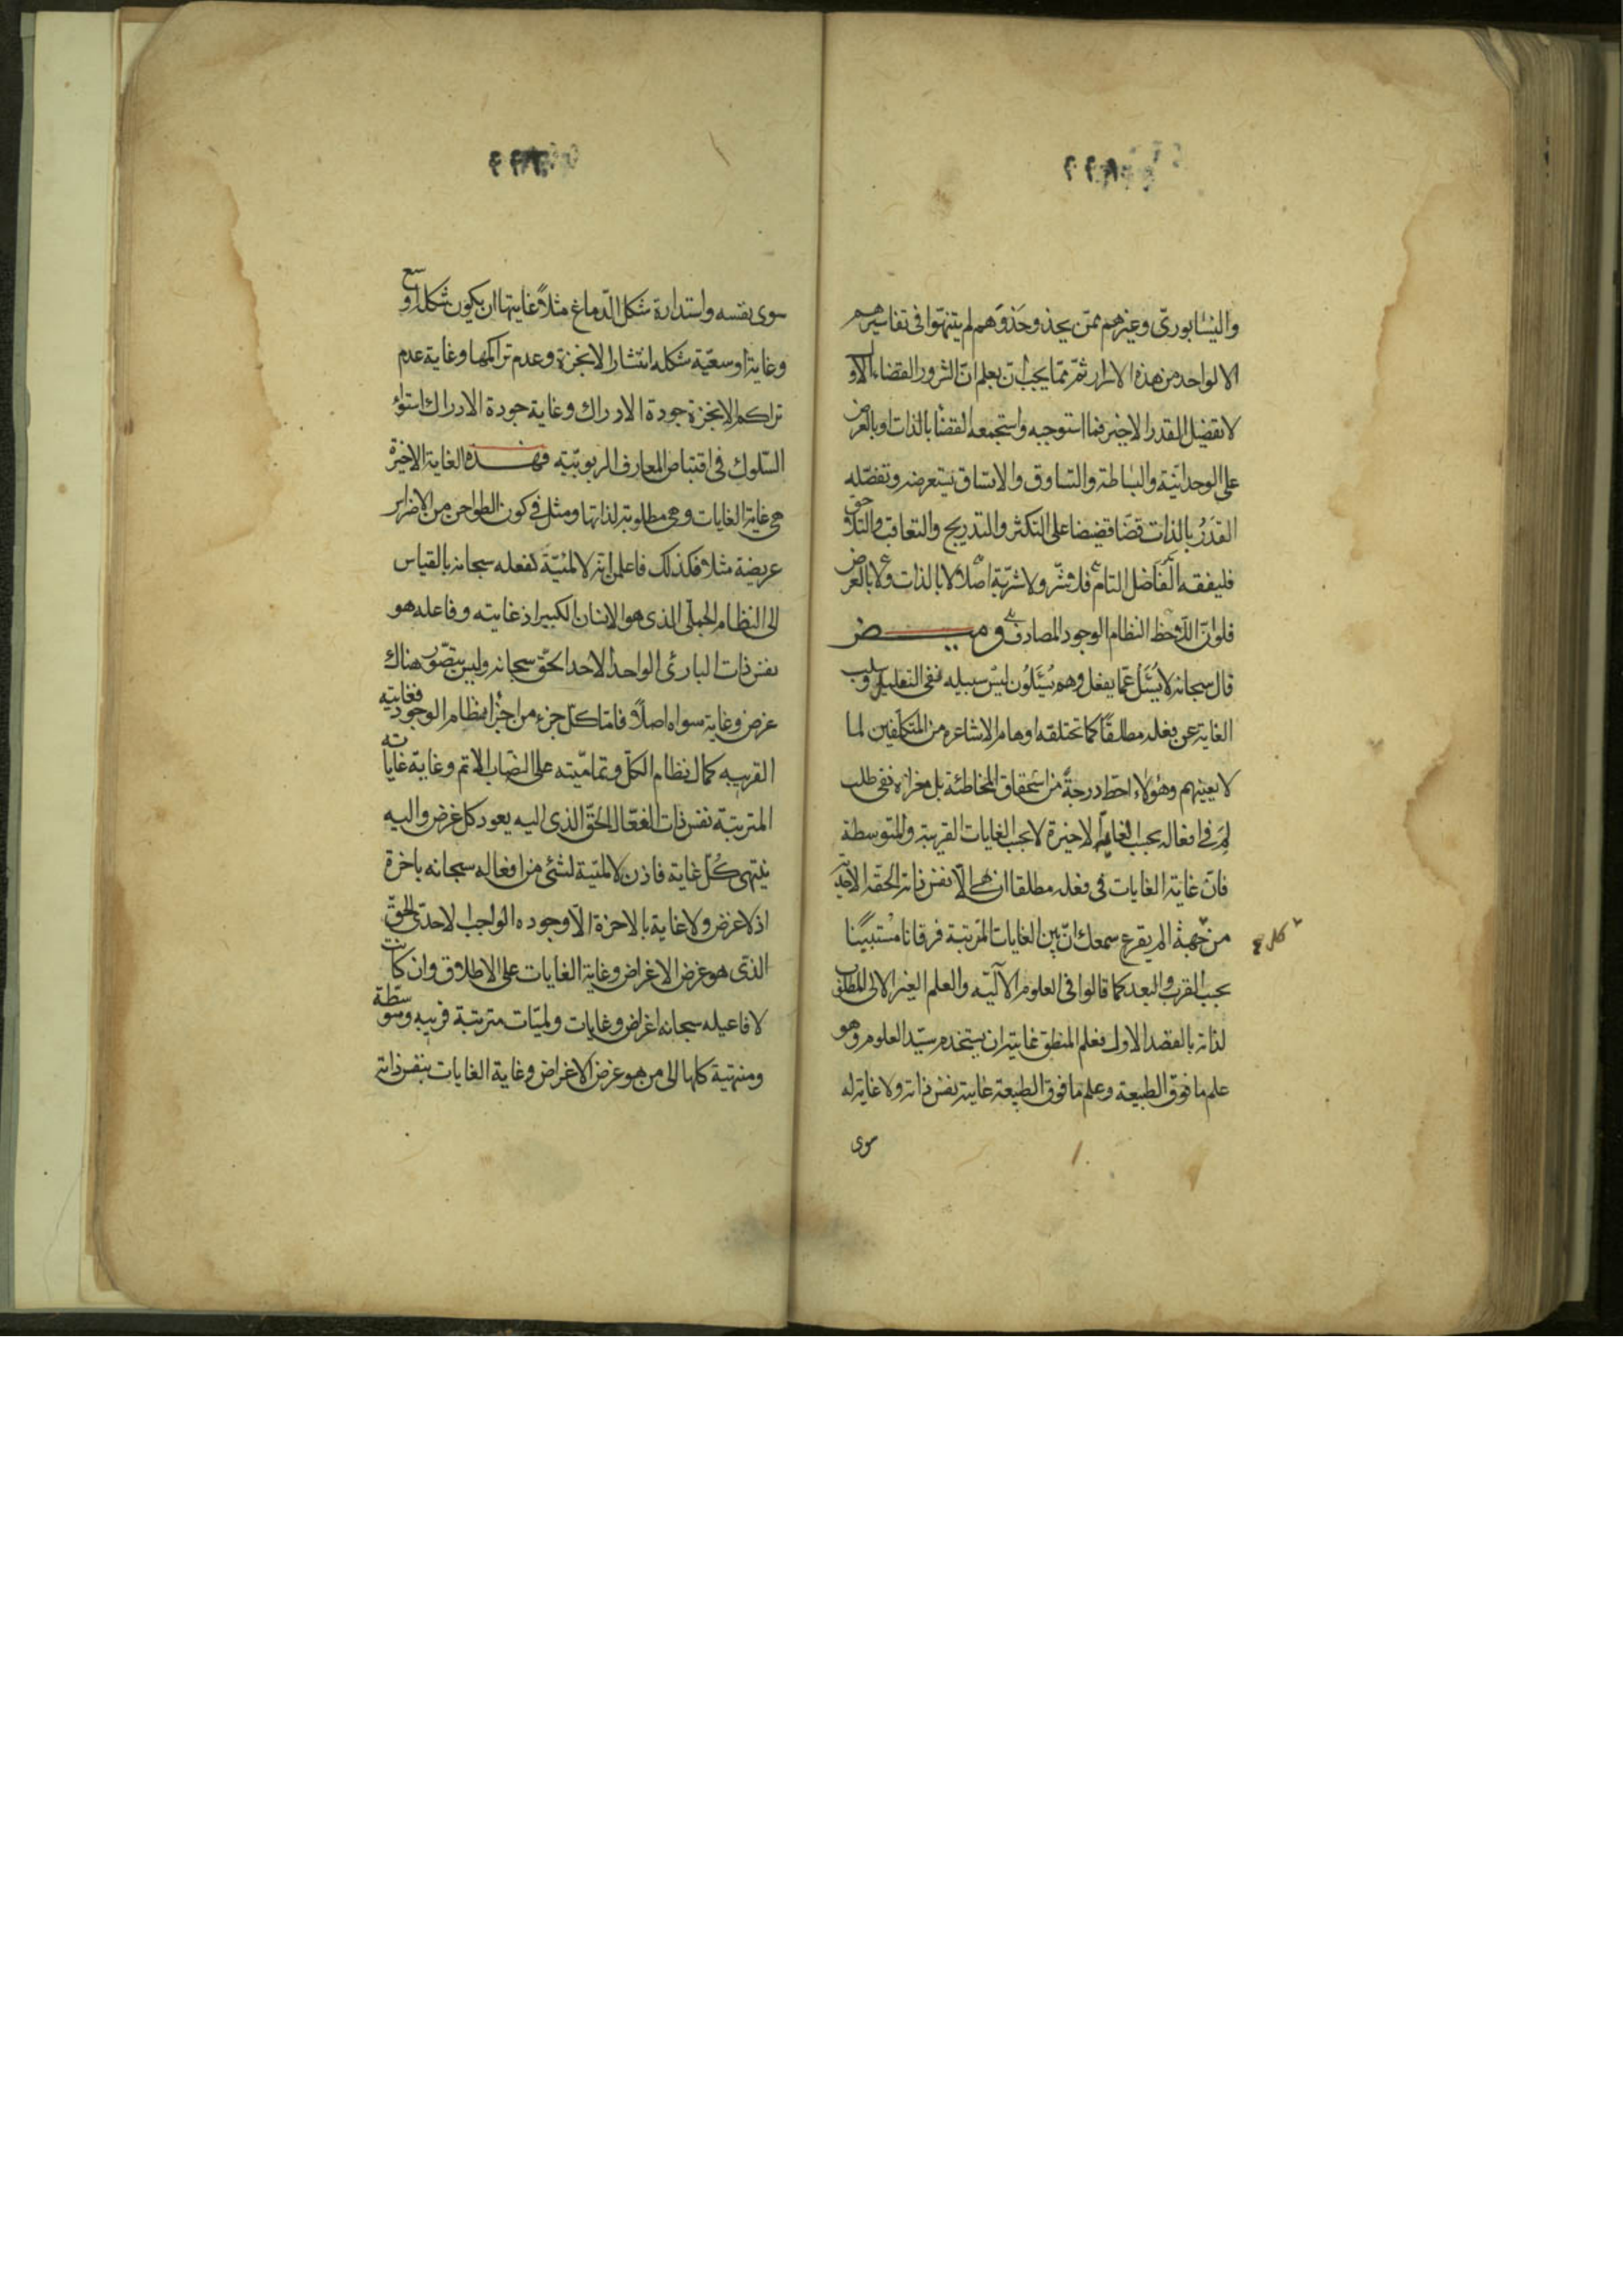 والنيسابوريّ وغيرهم ممّن يحذو حذوهم لم يتنبهوا في تفاسيرهم
الا لواحد من هذه الاسرار ثمّ ممّا يجب ان يعلم انّ الشرور القضاء الاوّل
لا تفصيل القدر الاخير فما استوجبه واستجمعه القضاء بالذات او بالعرض
على الوحدانيّة والبساطة والتساوق والاتساق يستعرضه وتفصّله
القَدَرُ بالذات قضّا قضيضا على التكثر والتدريج والتعاقب والتلاحق
فليفقه الفاضل التام فلا شرّ ولا شرّيّة اصلاً لا بالذات ولا بالعرض
فلو انّ اللاحظ النظام الوجود المصادف وميض
قال سبحانه لا يُسئل عمّا يفعل وهم يُسئلون ليس سبيله نفي التعليل وسلب
الغاية عن فعله مطلقًا كما تختلقه اوهام الاشاعرة من المتكلّفين لما
لا يعينهم وهؤلاء احطّ درجةً من استحقاق المخاطبة بل مغزاه نفي طلب
لِمَ في افعاله بحسب الغاية الاخيرة لا بحسب الغايات القريبة والمتوسطة
فانّ غاية الغايات في فعله مطلقا ان هي الّا نفس ذاته الحقّة الاحديّة
من جهة الم يقرع سمعك انّ بين الغايات المترتبة فرقانا مُستبينًا
بحسب القرب والبعد كما قالوا في العلوم الآليّة والعلم الغير الآلي المطلوب
لذاته بالقصد الاول فعلم المنطق غايته ان يستخدمه سيّد العلوم وهو
علم ما فوق الطبيعة وعلم ما فوق الطبيعة غايته نفس ذاته ولا غاية له
سوى
سوى نفسه واستدارة شكل الدّماغ مثلاً غايتها ان يكون شكله اوسع
وغاية اوسعيّة شكله انتشار الابخرة وعدم تراكمها وغاية عدم
تراكم الابخرة جودة الادراك وغاية جودة الادراك استواء
السّلوك في اقتناص المعارف الربوبيّة فهذه الغاية الاخيرة
هي غاية الغايات وهي مطلوبة لذاتها ومثل في كون الطواحن من الاضراس
عريضة مثلا فكذلك فاعلمن انه لا لميّة لفعله سبحانه بالقياس
الى النظام الجملي الذي هو الانسان الكبير اذ غايته وفاعله هو
نفس ذات البارئ الواحد الاحد الحقّ سبحانه وليس يتصّور هناك
غرض وغاية سواه اصلاً فامّا كلّ جزء من اجزاء نظام الوجود فغايته
القريبه كمال نظام الكلّ وتماميّته على النصاب الاتم وغاية غاياته
المترتبّة نفس ذات الفعّال الحقّ الذي اليه يعود كل غرض واليه
ينتهي كُل غاية فاذن لا لميّة لشئ من افعاله سبحانه باخرة
اذ لا غرض ولا غاية بالاخرة الّا وجوده الواجب الاحدّى الحقّ
الذى هو غرض الاغراض وغاية الغايات على الاطلاق وان كانت
لافاعيله سبحانه اغراض وغايات ولميّات مترتبة قريبه ومتوسّطة
ومنتهية كلها الى من هو غرض الاغراض وغاية الغايات بنفس ذاته